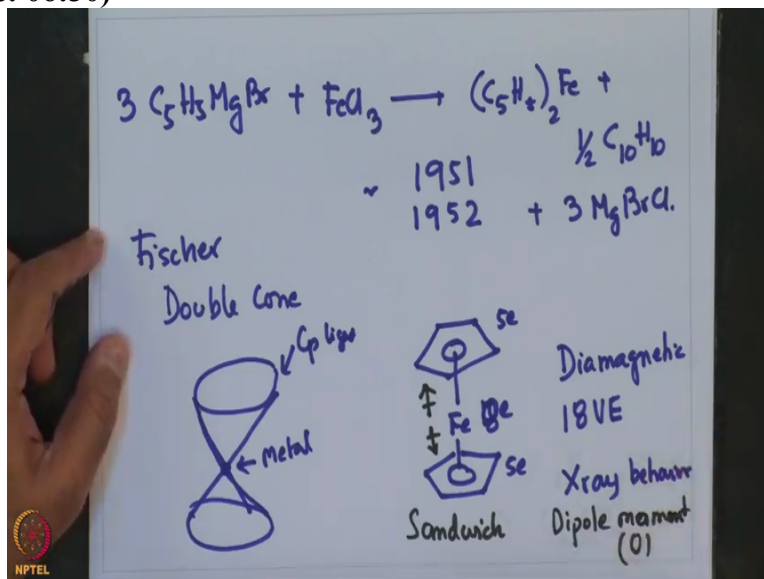 3 C5H5MgBr + FeCl3 ⟶ (C5H5)2Fe +
1/2 C10H10
~ 1951
1952 + 3 MgBrCl.
Fischer
Double Cone
Cp
Metal
5e
Fe 8e
5e
Sandwich
Diamagnetic
18VE
Xray behavior
Dipole moment
(0)
NPTEL